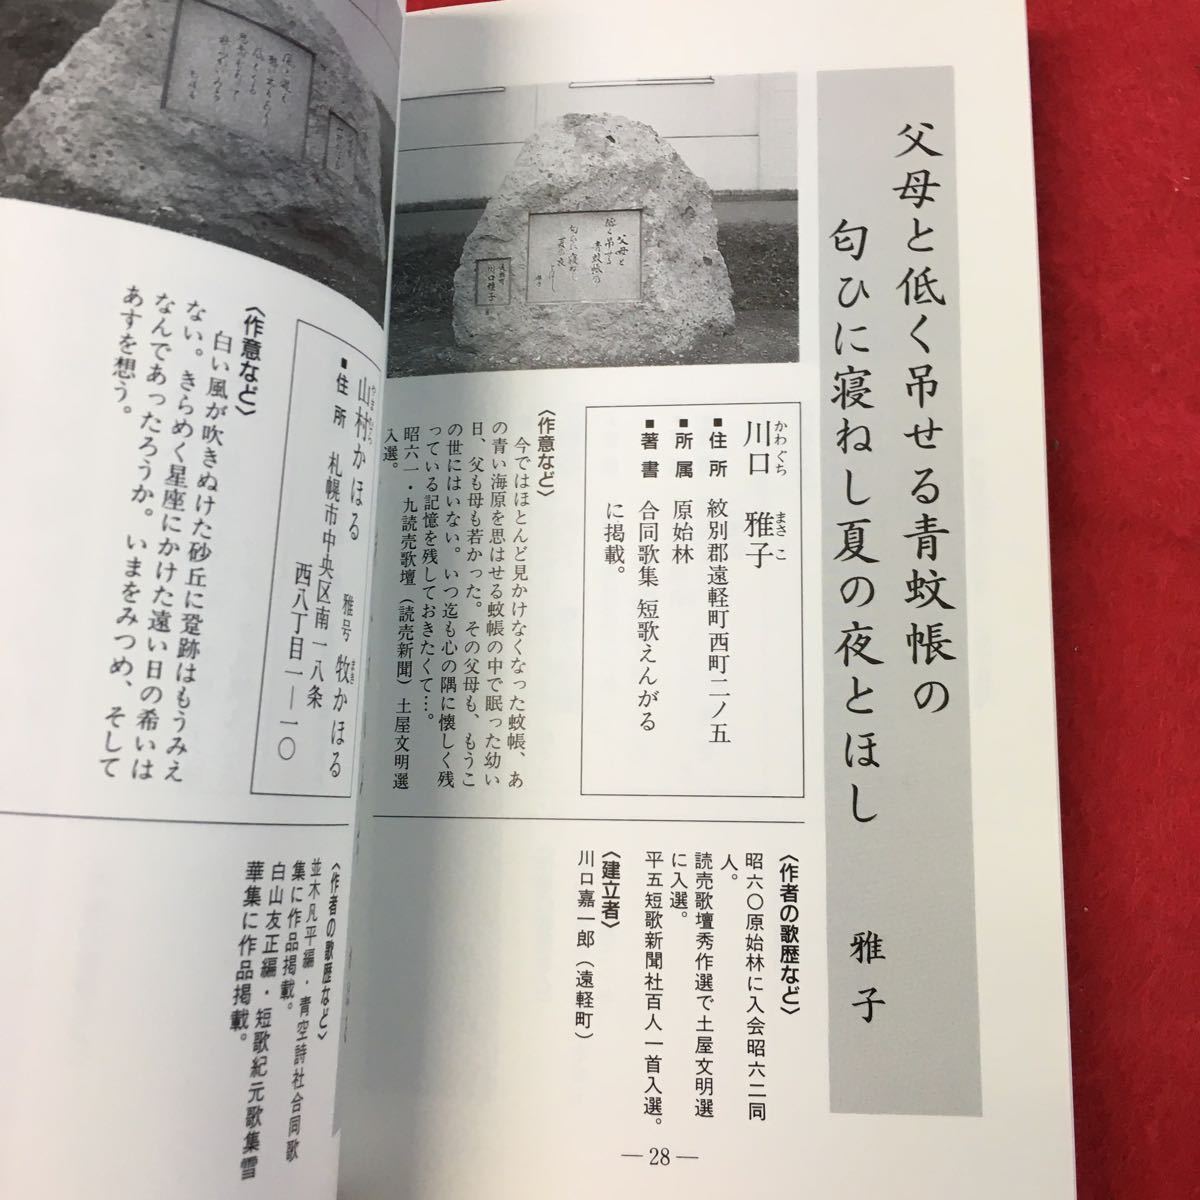 父母と低く吊せる青蚊帳の
匂ひに寝ねし夏の夜とほし
雅子
父母と
低く吊せる
青蚊帳の
匂ひに寝ねし
夏の夜
とほし
雅子
遠軽町
川口雅子
かわぐち まさこ
川口 雅子
■住所 紋別郡遠軽町西町二ノ五
■所属 原始林
■著書 合同歌集 短歌えんがる
に掲載。
〈作意など〉
今ではほとんど見かけなくなった蚊帳、あ
の青い海原を思はせる蚊帳の中で眠った幼い
日、父も母も若かった。その父母も、もうこ
の世にはいない。いつ迄も心の隅に懐しく残
っている記憶を残しておきたくて…。
昭六一・九読売歌壇（読売新聞）土屋文明選
入選。
〈作者の歌歴など〉
昭六〇原始林に入会昭六二同
人。
読売歌壇秀作選で土屋文明選
に入選。
平五短歌新聞社百人一首入選。
〈建立者〉
川口嘉一郎（遠軽町）
—28—
やまむら
山村かほる
雅号 牧かほる
まき
■住所 札幌市中央区南一八条
西八丁目一—一〇
〈作意など〉
白い風が吹きぬけた砂丘に跫跡はもうみえ
ない。きらめく星座にかけた遠い日の希いは
なんであったろうか。いまをみつめ、そして
あすを想う。
〈作者の歌歴など〉
並木凡平編・青空詩社合同歌
集に作品掲載。
白山友正編・短歌紀元歌集雪
華集に作品掲載。